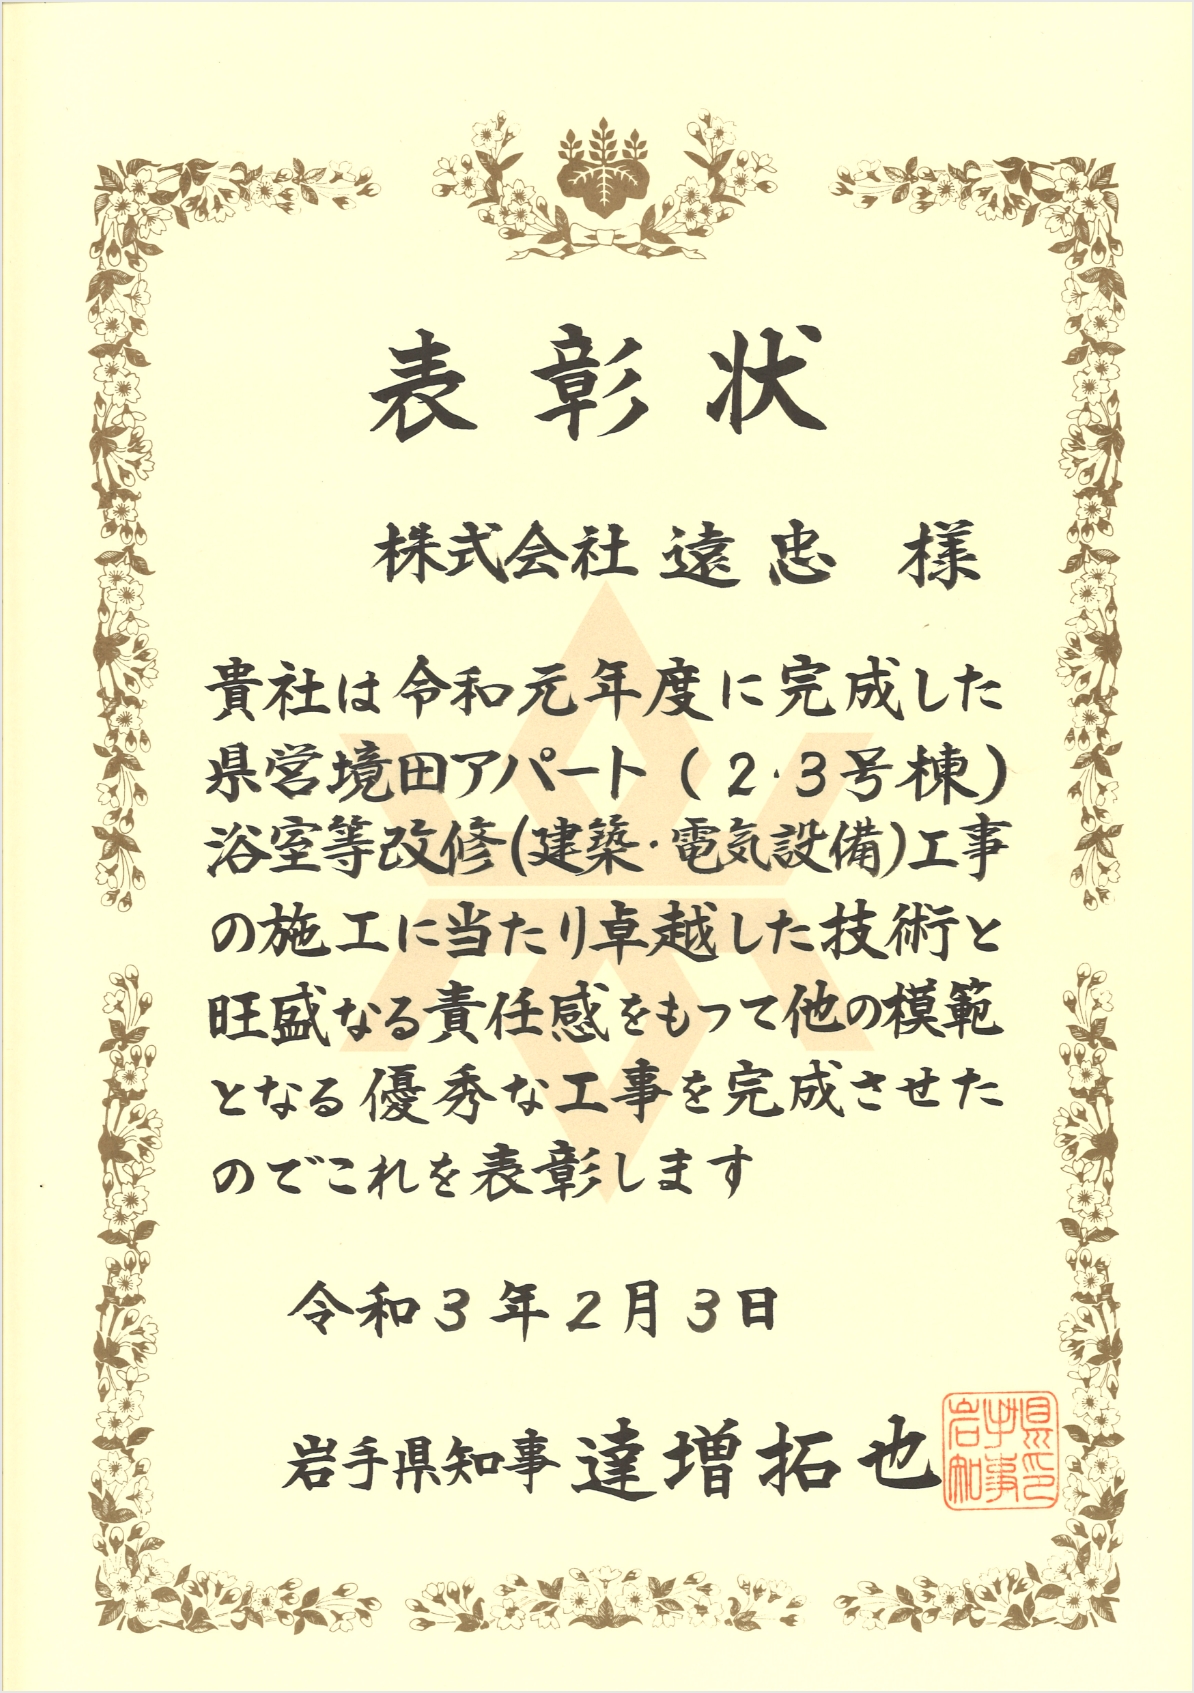 表彰状
株式会社 遠忠 様
貴社は令和元年度に完成した
県営境田アパート(2・3号棟)
浴室等改修(建築・電気設備)工事
の施工に当たり卓越した技術と
旺盛なる責任感をもって他の模範
となる優秀な工事を完成させた
のでこれを表彰します
令和3年2月3日
岩手県知事 達増拓也
岩手県知事印